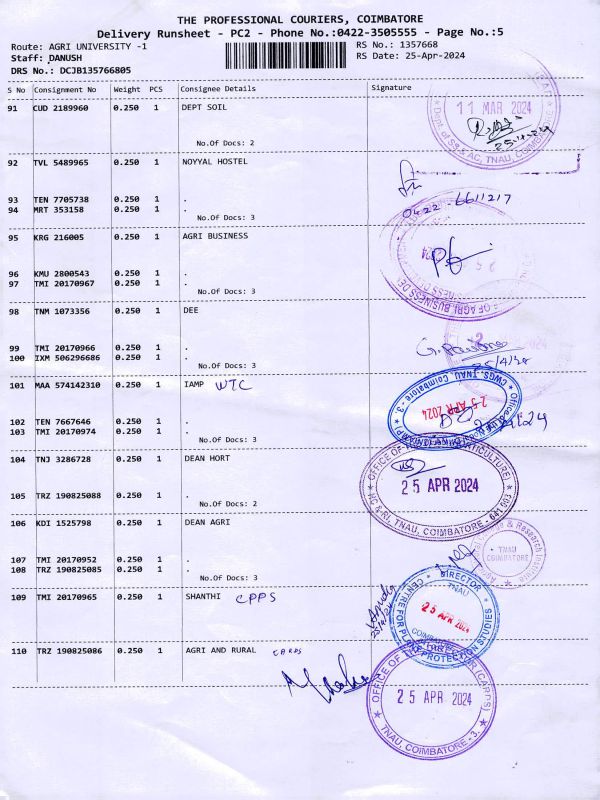 THE PROFESSIONAL COURIERS, COIMBATORE
Delivery Runsheet - PC2 - Phone No.:0422-3505555 - Page No.:5
Route: AGRI UNIVERSITY -1 RS No.: 1357668
Staff: DANUSH RS Date: 25-Apr-2024
DRS No.: DCJB135766805
S No Consignment No Weight PCS Consignee Details Signature
91 CUD 2189960 0.250 1 DEPT SOIL
11 MAR 2024
Dept. of SS & AC, TNAU, COIMBATORE
No.Of Docs: 2
92 TVL 5489965 0.250 1 NOYYAL HOSTEL
93 TEN 7705738 0.250 1 .
94 MRT 353158 0.250 1 .
0422-6611217
No.Of Docs: 3
95 KRG 216005 0.250 1 AGRI BUSINESS
96 KMU 2800543 0.250 1 .
97 TMI 20170967 0.250 1 .
No.Of Docs: 3
OF AGRI. BUSINESS DE
98 TNM 1073356 0.250 1 DEE
99 TMI 20170966 0.250 1 .
100 IXM 506296686 0.250 1 .
No.Of Docs: 3
101 MAA 574142310 0.250 1 IAMP WTC
CWGS, TNAU, Coimbatore - 3.
25 APR 2024
102 TEN 7667646 0.250 1 .
103 TMI 20170974 0.250 1 .
No.Of Docs: 3
104 TNJ 3286728 0.250 1 DEAN HORT
OFFICE OF (HORTICULTURE)
25 APR 2024
HC & RI, TNAU, COIMBATORE - 641 003
105 TRZ 190825088 0.250 1 .
No.Of Docs: 2
106 KDI 1525798 0.250 1 DEAN AGRI
& Research Institute
TNAU
COIMBATORE
107 TMI 20170952 0.250 1 .
108 TRZ 190825085 0.250 1 .
No.Of Docs: 3
109 TMI 20170965 0.250 1 SHANTHI CPPS
DIRECTOR
TNAU
25 APR 2024
CENTRE FOR PLANT PROTECTION STUDIES
110 TRZ 190825086 0.250 1 AGRI AND RURAL CARDS
OFFICE OF THE DIRECTOR (CARDS)
25 APR 2024
TNAU, COIMBATORE - 3.